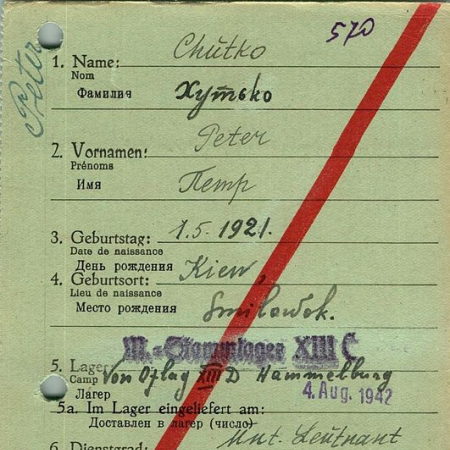 Peter
570
1. Name: Chutko
Nom
Фамилия Хутько
Peter
2. Vornamen:
Prénoms
Имя Петр
3. Geburtstag: 1.5.1921.
Date de naissance
День рождения
4. Geburtsort: Kiew,
Lieu de naissance
Место рождения Smilowok.
M.-Stammlager XIII C
5. Lager
Camp Von Oflag XIII D Hammelburg
Лагерь 4. Aug. 1942
5a. Im Lager eingeliefert am:
Доставлен в лагерь (число)
6. Dienstgrad: Unt. Leutnant